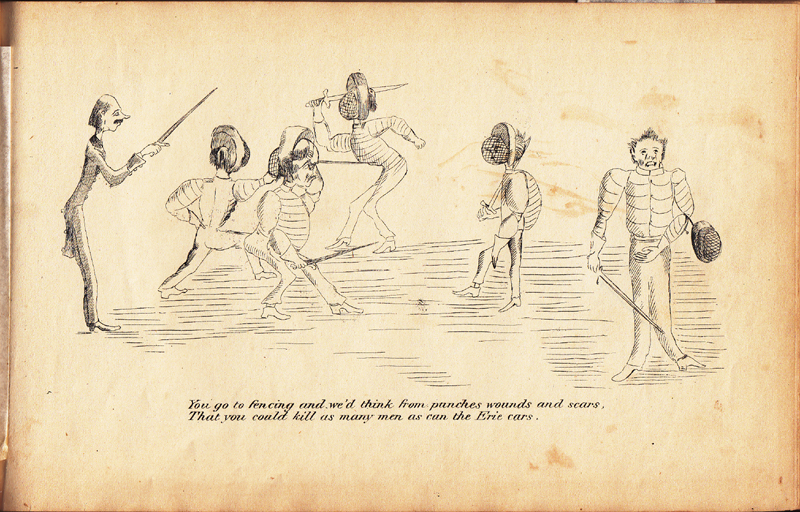 You go to fencing and we'd think from punches wounds and scars,
That you could kill as many men as can the Erie cars.